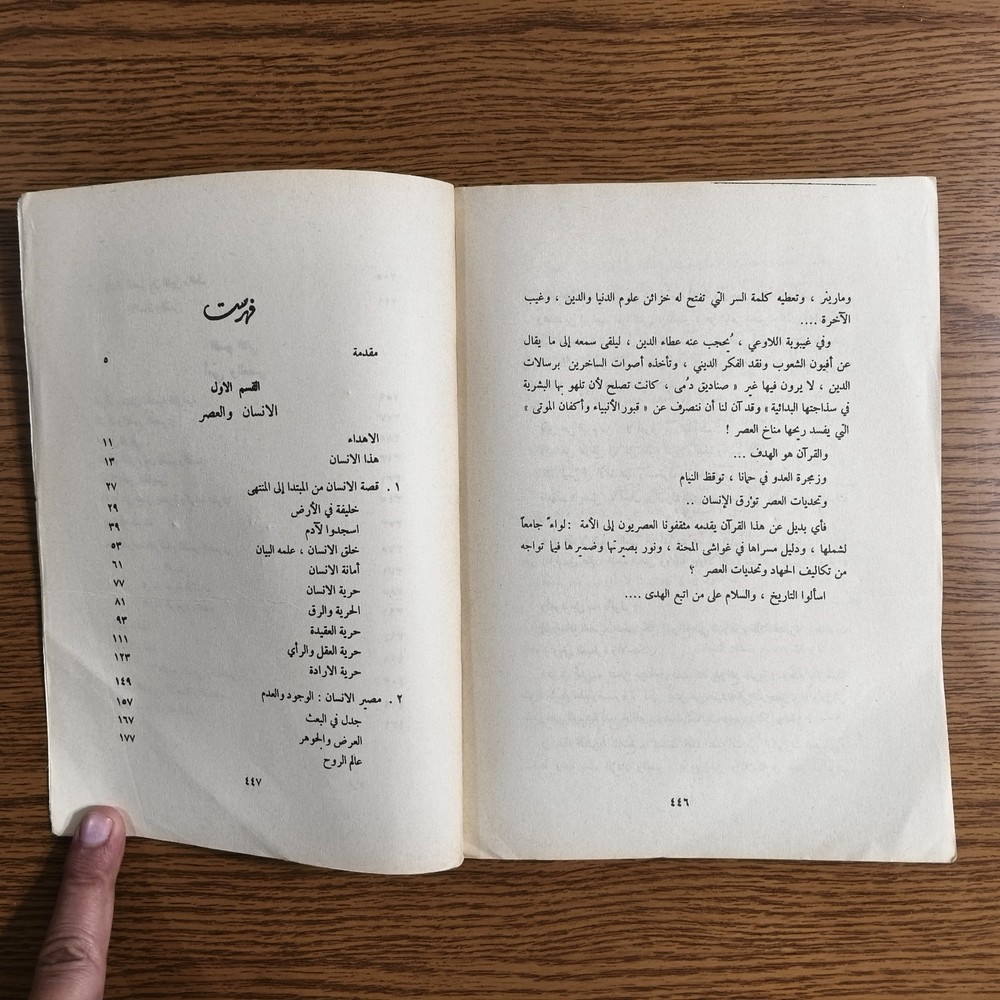 ومارينر ، وتعطيه كلمة السر التي تفتح له خزائن علوم الدنيا والدين ، وغيب
الآخرة ....
وفي غيبوبة اللاوعي ، يُحجب عنه عطاء الدين ، ليلقى سمعه إلى ما يقال
عن أفيون الشعوب ونقد الفكر الديني ، وتأخذه أصوات الساخرين برسالات
الدين ، لا يرون فيها غير « صناديق دُمى ، كانت تصلح لأن تلهو بها البشرية
في سذاجتها البدائية » وقد آن لنا أن ننصرف عن « قبور الأنبياء وأكفان الموتى »
التي يفسد ريحها مناخ العصر !
والقرآن هو الهدف ...
وزمجرة العدو في حمانا ، توقظ النيام
وتحديات العصر تؤرق الإنسان ..
فأي بديل عن هذا القرآن يقدمه مثقفونا العصريون إلى الأمة : لواءً جامعاً
لشملها ، ودليل مسراها في غواشي المحنة ، ونور بصيرتها وضميرها فيما تواجه
من تكاليف الجهاد وتحديات العصر ؟
اسألوا التاريخ ، والسلام على من اتبع الهدى ....
٤٤٦
فهرست
مقدمة ٥
القسم الاول
الانسان والعصر
الاهداء ١١
هذا الانسان ١٣
١ . قصة الانسان من المبتدا إلى المنتهى ٢٧
خليفة في الأرض ٢٩
اسجدوا لآدم ٣٩
خلق الانسان ، علمه البيان ٥٣
أمانة الانسان ٦١
حرية الانسان ٧٧
الحرية والرق ٨١
حرية العقيدة ٩٣
حرية العقل والرأي ١١١
حرية الارادة ١٢٣
٢ . مصير الانسان : الوجود والعدم ١٤٩
جدل في البعث ١٥٧
العرض والجوهر ١٦٧
عالم الروح ١٧٧
٤٤٧